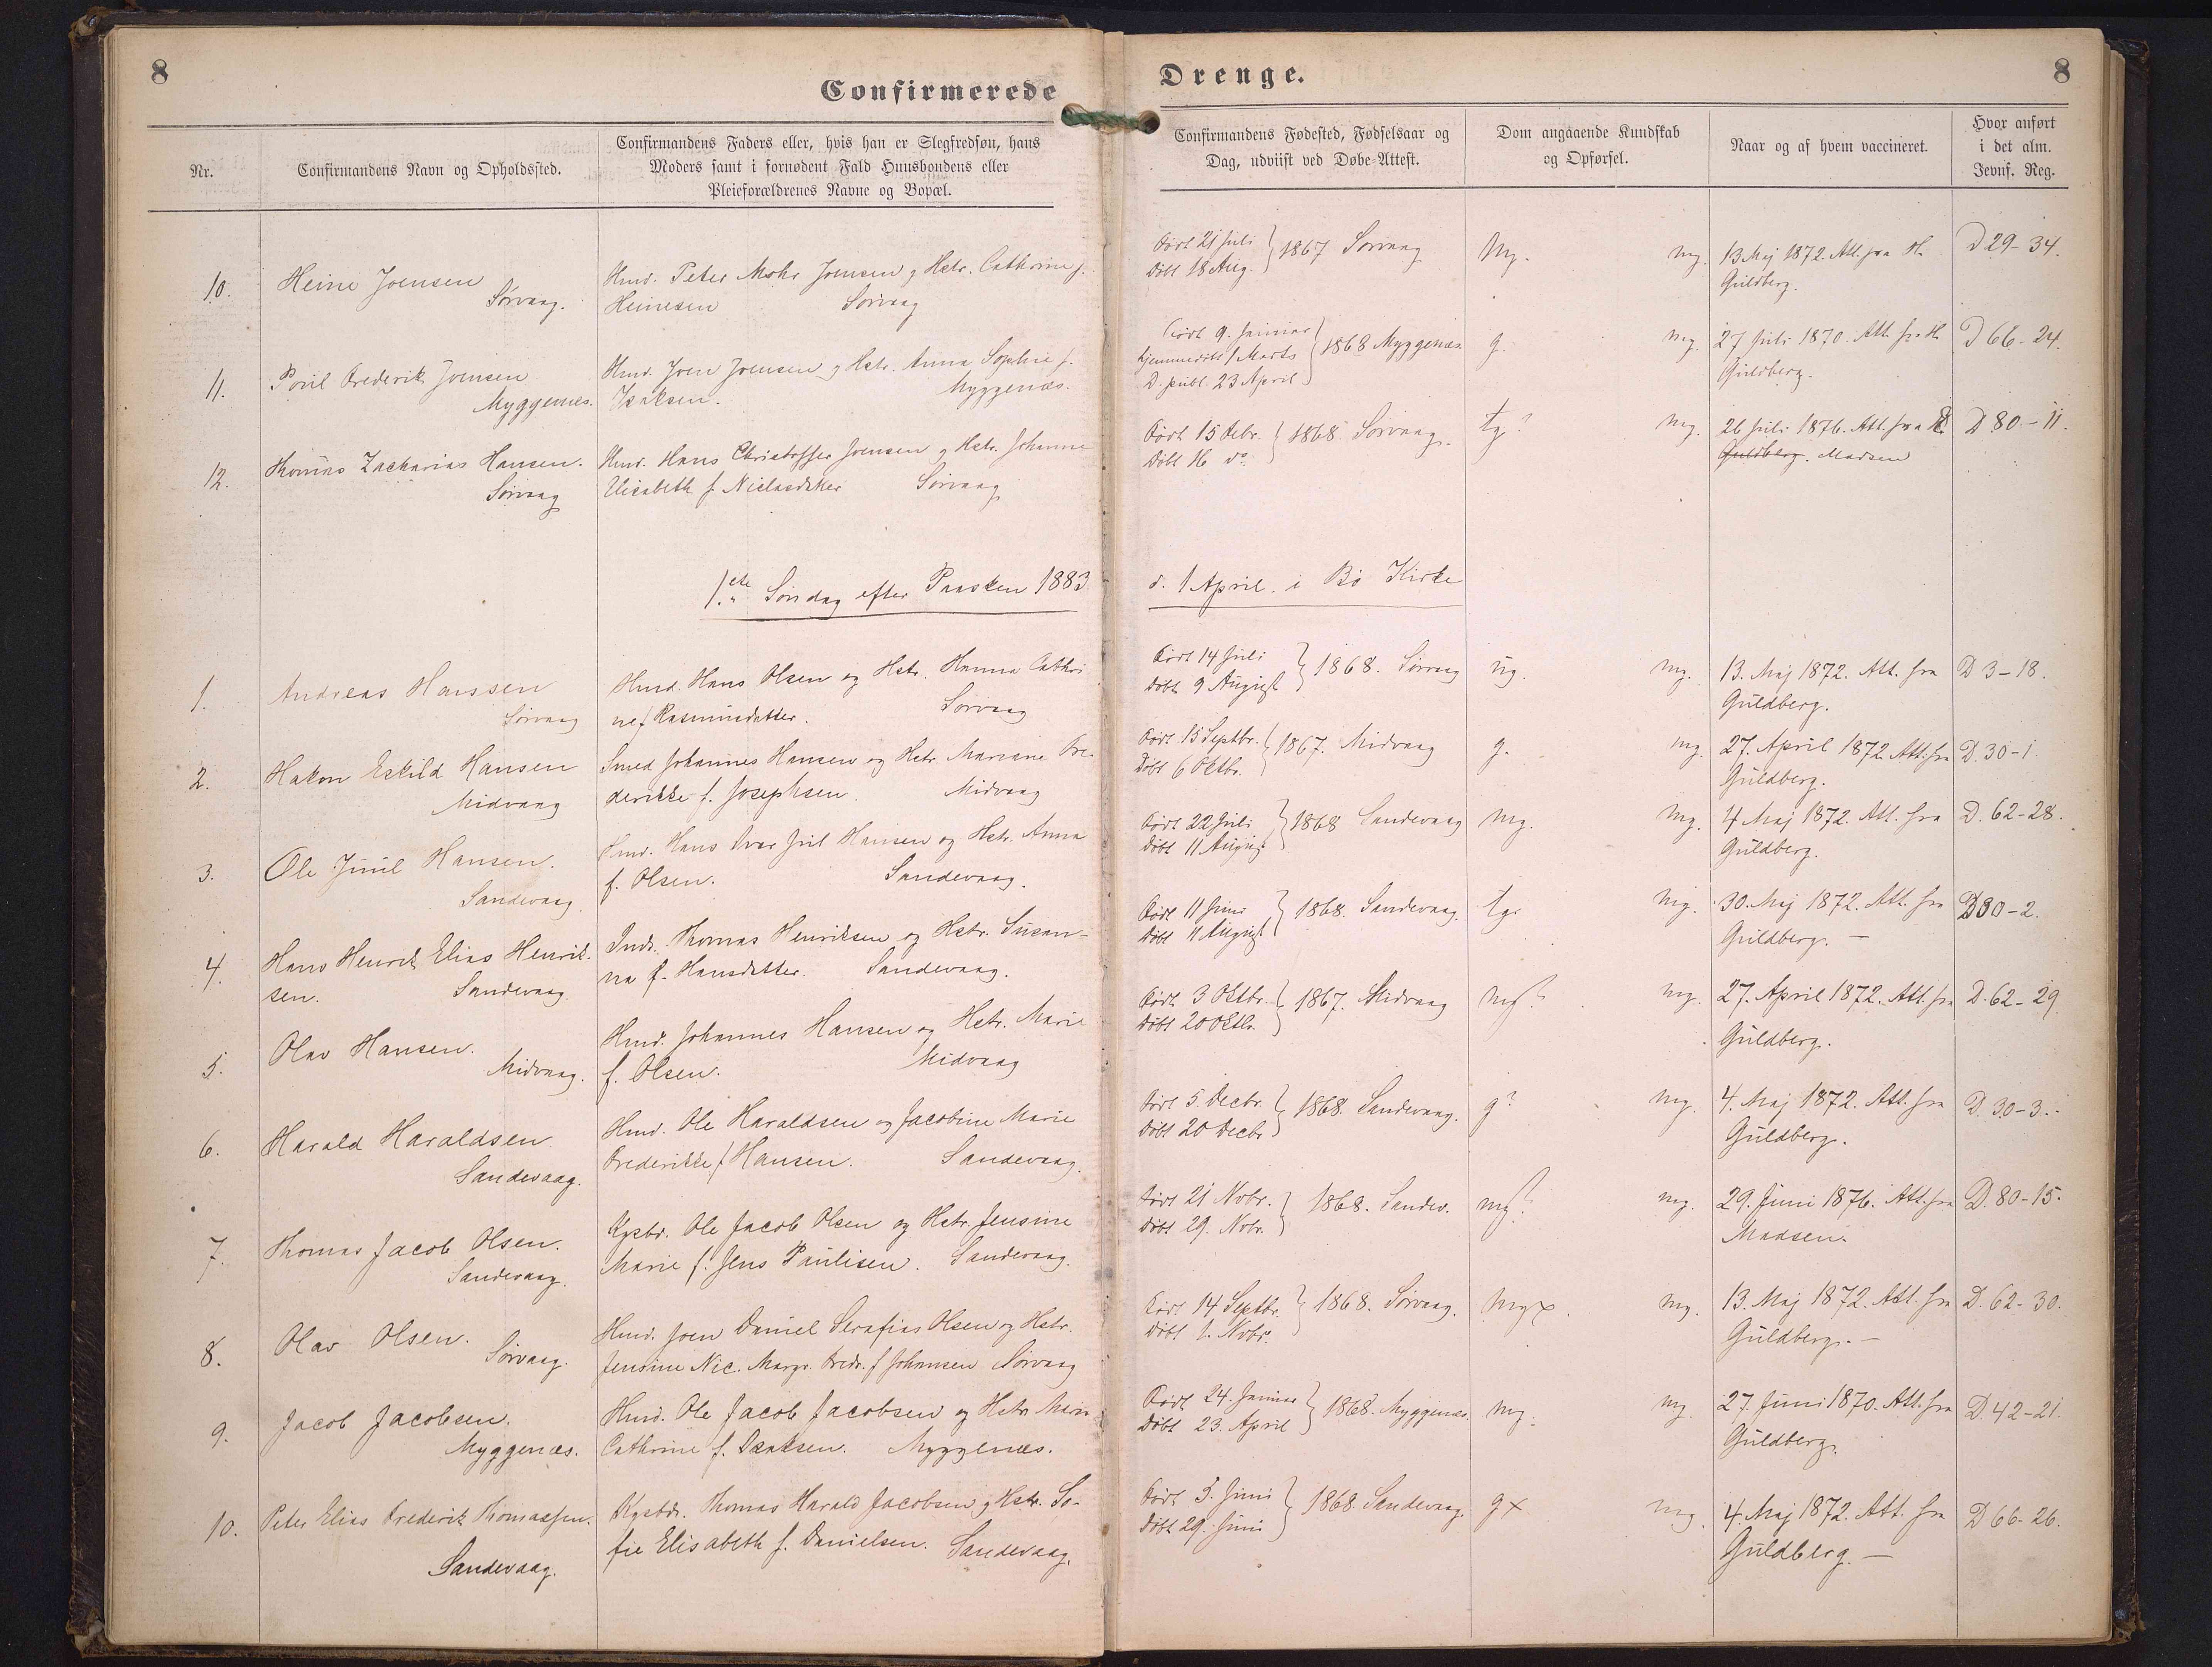 8
Confirmerede
Drenge.
8
Nr.
Confirmandens Navn og Opholdssted.
Confirmandens Faders eller, hvis han er Slegfredsøn, hans
Moders samt i fornødent Fald Huusbondens eller
Pleieforældrenes Navne og Bopæl.
Confirmandens Fødested, Fødselsaar og
Dag, udviist ved Døbe-Attest.
Dom angaaende Kundskab
og Opførsel.
Naar og af hvem vaccineret.
Hvor anført
i det alm.
Jevnf. Reg.
10.
Heine Joensen
Sørvaag.
Hmd. Peter Mohr Joensen og Hstr. Cathrine f.
Heinesen Sørvaag
Født 21 Juli
Døbt 18 Aug. } 1867 Sørvaag
mg. mg.
13 Maj 1872. Att. fra H.
Guldberg.
D 29-34.
11.
Poul Frederik Joensen
Myggenæs.
Hmd. Joen Joensen og Hstr. Anna Sophie f.
Isaksen. Myggenæs.
Født 9. Januar
hjemmedøbt 1 Marts
D. publ. 23 April } 1868 Myggenæs
g. mg.
27 Juli 1870. Att. fra H.
Guldberg.
D 66-24.
12.
Thomas Zacharias Hansen.
Sørvaag
Hmd. Hans Christoffer Joensen og Hstr. Johanne
Elisabeth f. Niclasdatter Sørvaag
Født 15 Febr.
Døbt 16 do } 1868 Sørvaag.
tg? mg.
26 Juli 1876. Att. fra
Guldberg. Madsen
D 80.-11.
1.ste Søndag efter Paasken 1883
d. 1 April. i Bø Kirke
1.
Andreas Hanssen
Sørvaag
Hmd. Hans Olsen og Hstr. Hanna Cathri
ne f Rasmusdatter. Sørvaag
Født 14 Juli
Døbt 9 August } 1868. Sørvaag
ug. mg.
13. Maj 1872. Att. fra
Guldberg.
D 3-18.
2.
Hakon Eskild Hansen
Midvaag
Smed Johannes Hansen og Hstr. Mariane Fre-
derikke f. Josephsen. Midvaag
Født 15 Septbr.
Døbt 6 Oktbr. } 1867. Midvaag
g. mg.
27. April 1872. Att. fra
Guldberg.
D. 30-1
3.
Ole Juul Hansen.
Sandevaag.
Hmd. Hans Ivar Juul Hansen og Hstr. Anna
f. Olsen. Sandevaag.
Født 22 Juli
Døbt 11 August } 1868 Sandevaag
mg. mg.
4 Maj 1872. Att. fra
Guldberg.
D. 62-28.
4.
Hans Henrik Elias Henrik-
sen. Sandevaag
Inds. Thomas Henriksen og Hstr. Susan-
na f. Hansdatter. Sandevaag.
Født 11 Juni
Døbt 11 August } 1868. Sandevaag.
tg. mg.
30. Maj 1872. Att. fra
Guldberg. —
D 30-2.
5.
Olav Hansen.
Midvaag.
Hmd. Johannes Hansen og Hstr. Marie
f. Olsen. Midvaag
Født 3 Oktbr.
Døbt 20 Oktbr. } 1867. Midvaag
mg? mg.
27. April 1872. Att. fra
Guldberg.
D. 62-29
6.
Harald Haraldsen
Sandevaag.
Hmd. Ole Haraldsen og Jacobine Marie
Frederikke f Hansen. Sandevaag.
Født 5. Decbr.
Døbt 20 Decbr } 1868. Sandevaag.
g? mg.
4. Maj 1872. Att. fra
Guldberg.
D. 30-3.-
7.
Thomas Jacob Olsen.
Sandevaag.
Kgsbd. Ole Jacob Olsen og Hstr. Jensine
Marie f. Jens Paulisen. Sandevaag.
Født 21 Nobr.
Døbt 29. Nobr. } 1868. Sandev.
mg? mg.
29. Juni 1876. Att. fra
Madsen.
D. 80-15.
8.
Olav Olsen.
Sørvaag.
Hmd. Joen Daniel Serafias Olsen og Hstr.
Jensine Nic. Margr. Fredr. f Johansen Sørvaag
Født 14 Septbr.
Døbt 1. Nobr. } 1868. Sørvaag.
mgx. mg.
13. Maj 1872. Att. fra
Guldberg. —
D. 62-30.
9.
Jacob Jacobsen.
Myggenæs.
Hmd. Ole Jacob Jacobsen og Hstr. Maria
Cathrine f. Isaksen. Myggenæs.
Født 24. Januar
Døbt 23. April } 1868. Myggenæs.
mg. mg.
27. Juni 1870. Att. fra
Guldberg.
D. 42-21.
10.
Peter Elias Frederik Thomassen.
Sandevaag.
Kgsbd. Thomas Harald Jacobsen og Hstr. So-
fie Elisabeth f. Danielsen. Sandevaag.
Født 3. Juni
Døbt 29. Juni } 1868. Sandevaag.
gx mg.
4. Maj 1872. Att. fra
Guldberg. —
D 66-26.